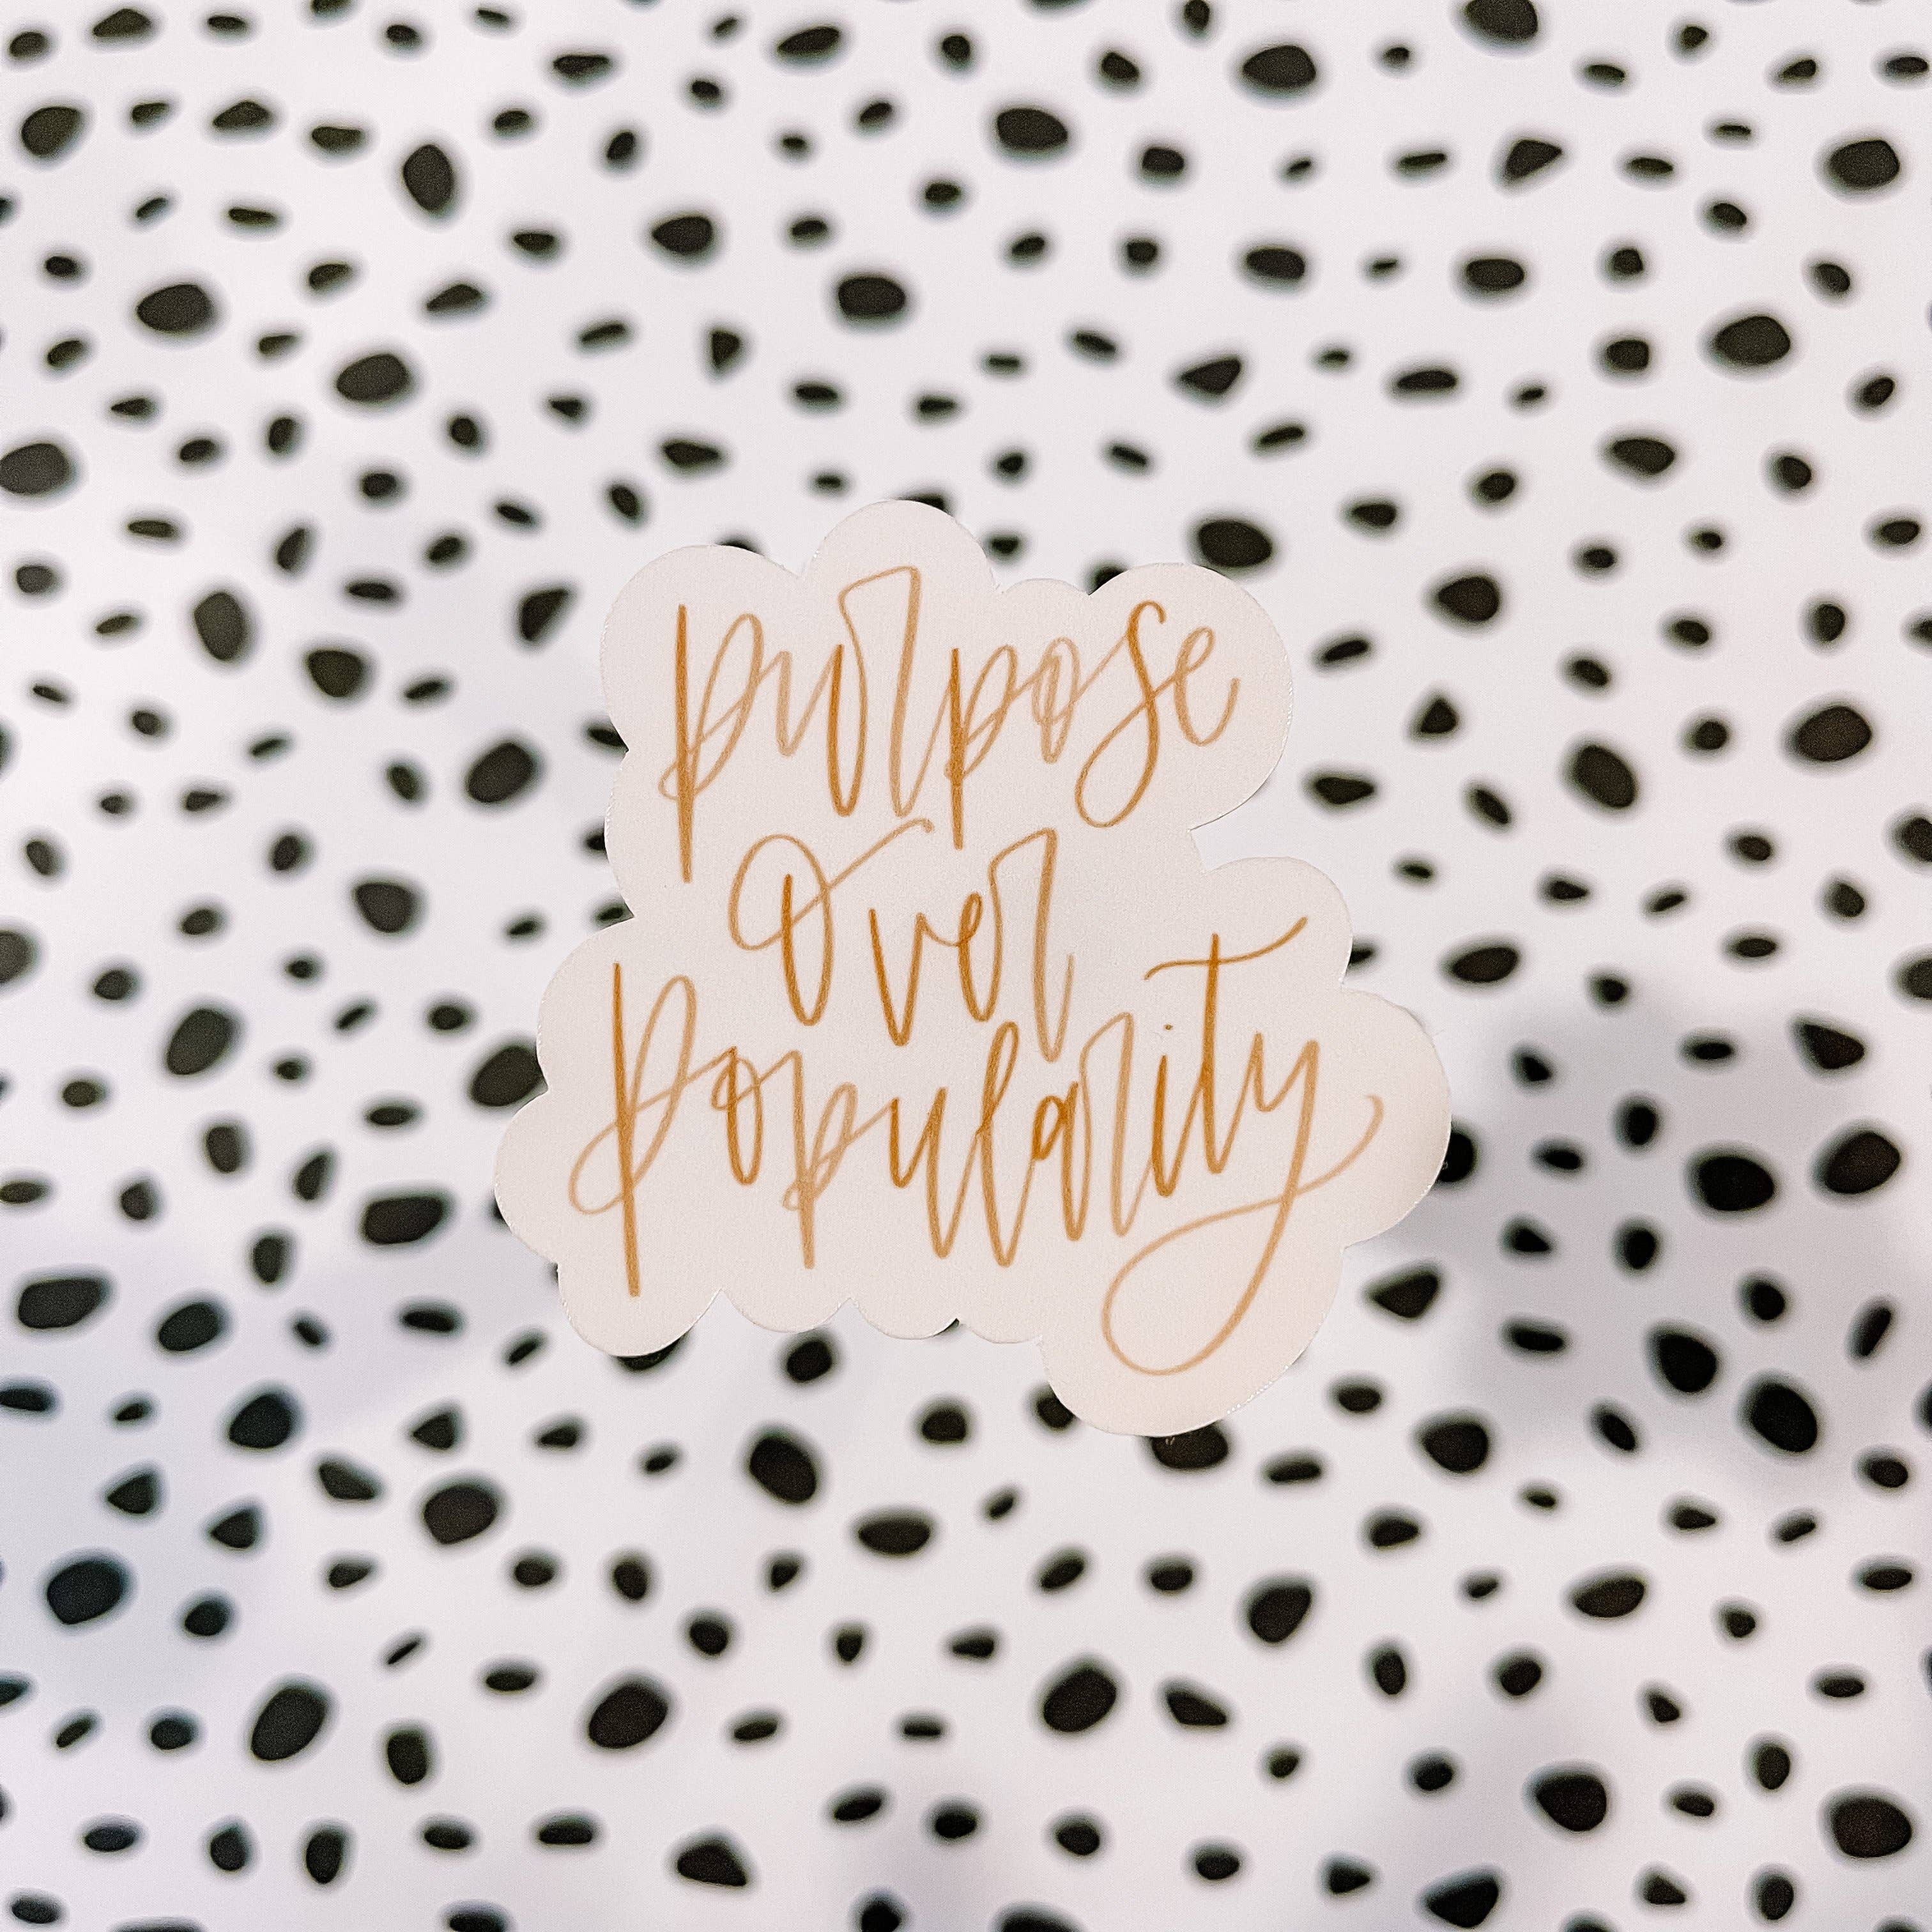 purpose
Over
Popularity